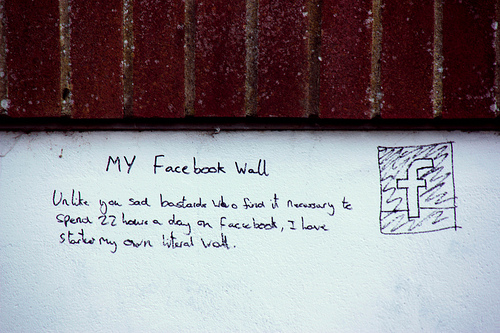 MY Facebook Wall
Unlike you sad bastards who find it necessary to
spend 22 hours a day on facebook, I have
started my own literal wall.
f